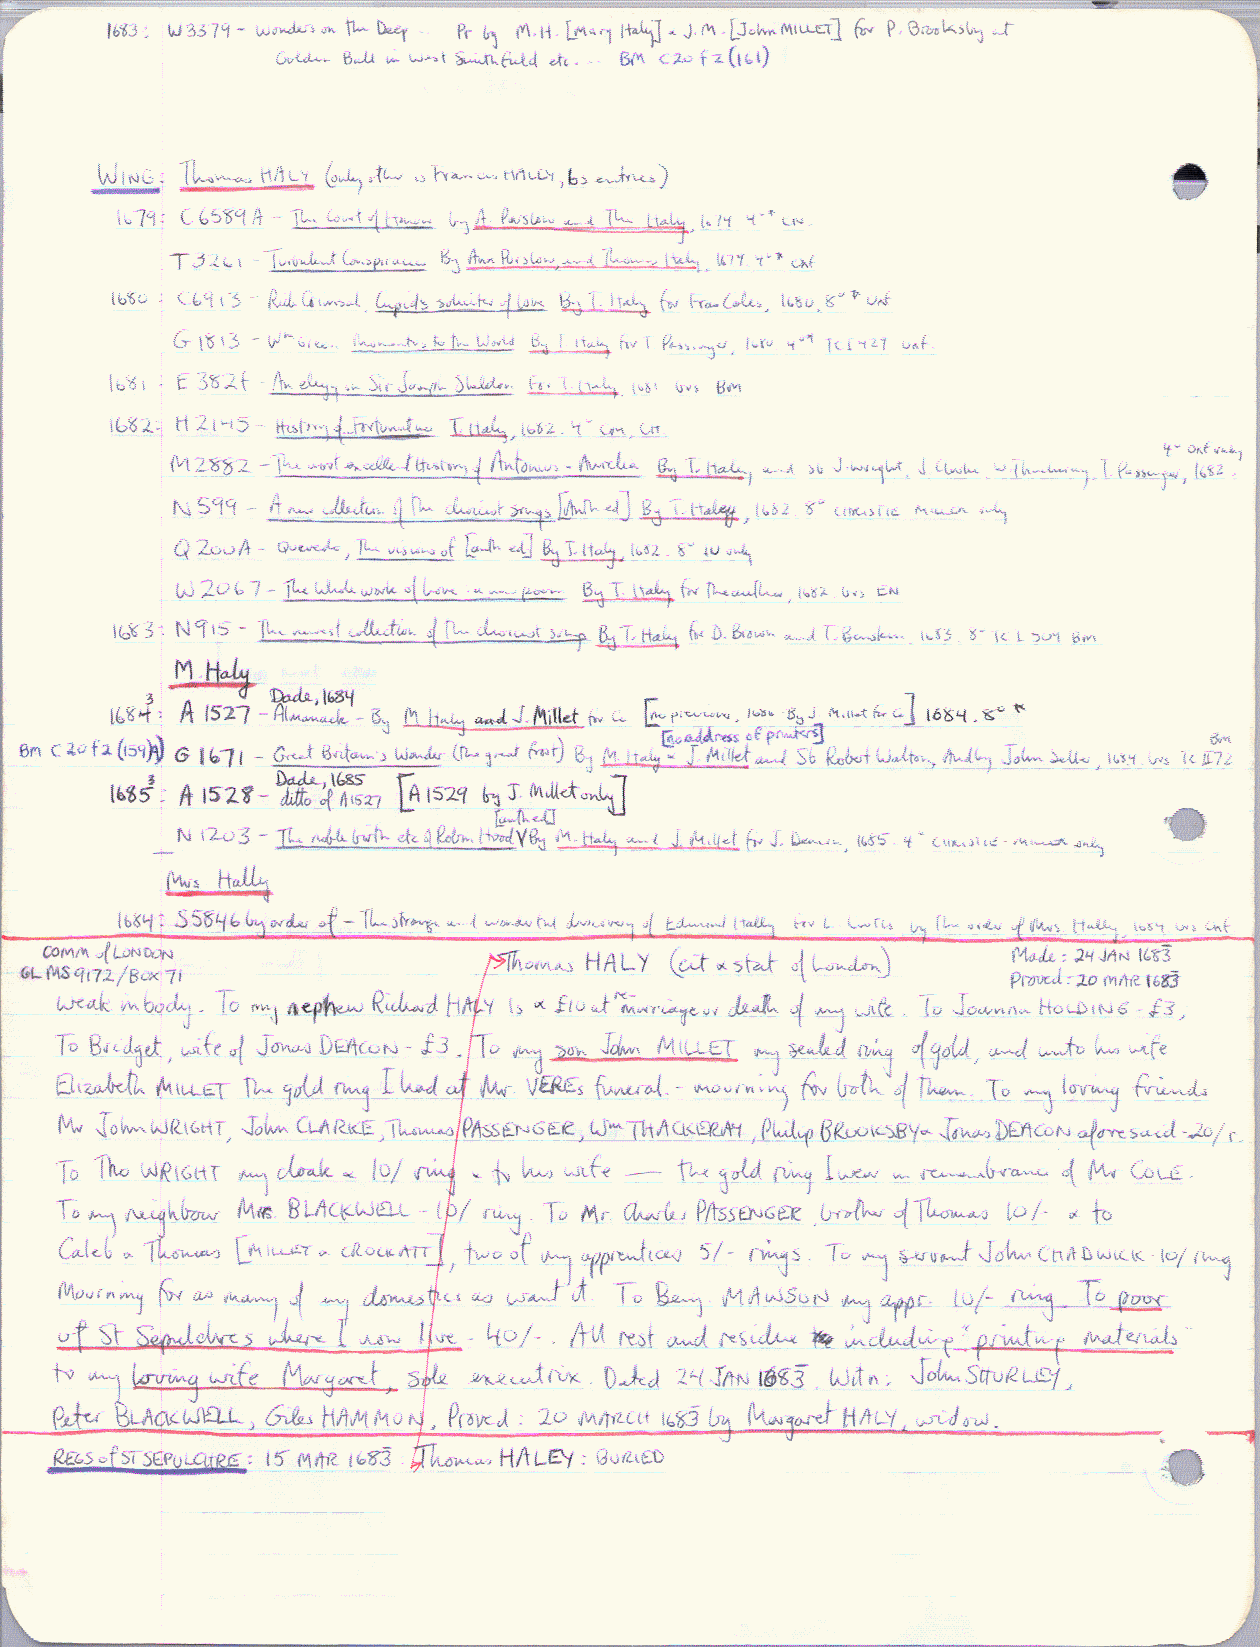 1683: W3379 - Wonders on the Deep .. Pr by M.H. [Mary Haly] & J.M. [John MILLET] for P. Brooksby at
Golden Ball in West Smithfield etc... BM C20 f2 (161)
WING: Thomas HALY (only other is Francis HALLEY, bs entries)
1679: C6589A - The Court of Honour by A. Purslow and Tho Haly, 1679 4°* CN.
T3261 - Turbulent Conspiracies By Ann Purslow, and Thomas Haly, 1679. 4°*
1680: C6913 - Rich Cupid's soliciter of love By T. Haly for Fras Coles, 1680. 8°*
G1813 - Wm Green. Momentus to the World By T Haly for T Passenger, 1680 4°*
1681: E382f - An elegy on Sir Joseph Sheldon. For T. Haly, 1681 brs BM
1682: H2145 - History of Fortunatus T. Haly, 1682. 4° CM, CH.
M2882 - The most excellent History of Antonius - Aurelia By T. Haly, and sb J. Wright, J Clarke, W Thackeray, T. Passenger, 1682.
N599 - A new collection of the choicest songs [Anth ed] By T. Haley, 1682. 8° CHRISTIE MILLER only
Q200A - Quevedo, The visions of [anth ed] By T. Haly, 1682. 8° IU only
W2067 - The whole work of love - a new poem By T. Haly for the author, 1682. brs EN
1683: N915 - The newest collection of the choicest songs By T. Haly for D. Brown and T. Benskin. 1683. 8° BM
M. Haly
Dade, 1684
1684 3: A1527 - Almanack - By M Haly and J. Millet for Co [no previous, 1686 - By J Millet for Co] 1684. 8°*
[no address of printers]
BM C20 f2 (159A) G1671 - Great Britain's Wonder (the great frost) By M. Haly & J. Millet and Sb Robert Walton, And by John Seller, 1684. brs TC II 72 BM
Dade, 1685
1685 3: A1528 - ditto of A1527 [A1529 by J. Millet only]
[anth ed]
N1203 - The noble birth etc of Robin Hood By M. Haly and J. Millet for J. Deacon, 1685. 4° CHRISTIE-MILLER only
Mrs Hally
1684: S5846 by order of - The strange and wonderful discovery of Edmund Hally For L. Curtis, by the order of Mrs. Hally, 1684 brs
COMM of LONDON
GL MS 9172/BOX 71
Thomas HALY (cit & stat of London)
Made: 24 JAN 1683
Proved: 20 MAR 1683
weak in body. To my nephew Richard HALY 1s & £10 at re-marriage or death of my wife. To Joanna HOLDING - £3,
To Bridget, wife of Jonas DEACON - £3. To my son John MILLET my sealed ring of gold, and unto his wife
Elizabeth MILLET the gold ring I had at Mr. VEREs funeral. - mourning for both of them. To my loving friends
Mr John WRIGHT, John CLARKE, Thomas PASSENGER, Wm THACKERAY, Philip BROOKSBY & Jonas DEACON aforesaid - 20/ r.
To Tho WRIGHT my cloak & 10/ ring & to his wife — the gold ring I wear in remembrance of Mr COLE.
To my neighbour Mrs. BLACKWELL - 10/ ring. To Mr. Charles PASSENGER, brother of Thomas 10/- & to
Caleb & Thomas [MILLET & CROCKATT], two of my apprentices 5/- rings. To my servant John CHADWICK - 10/ ring
Mourning for as many of my domestics as want it. To Benj. MAWSON my appr. 10/- ring. To poor
of St Sepulchres where I now live - 40/-. All rest and residue including "printing materials"
to my loving wife Margaret, sole executrix. Dated 24 JAN 1683. Witn: John SHURLEY,
Peter BLACKWELL, Giles HAMMON, Proved: 20 MARCH 1683 by Margaret HALY, widow.
REGS of ST SEPULCHRE: 15 MAR 1683. Thomas HALEY: BURIED